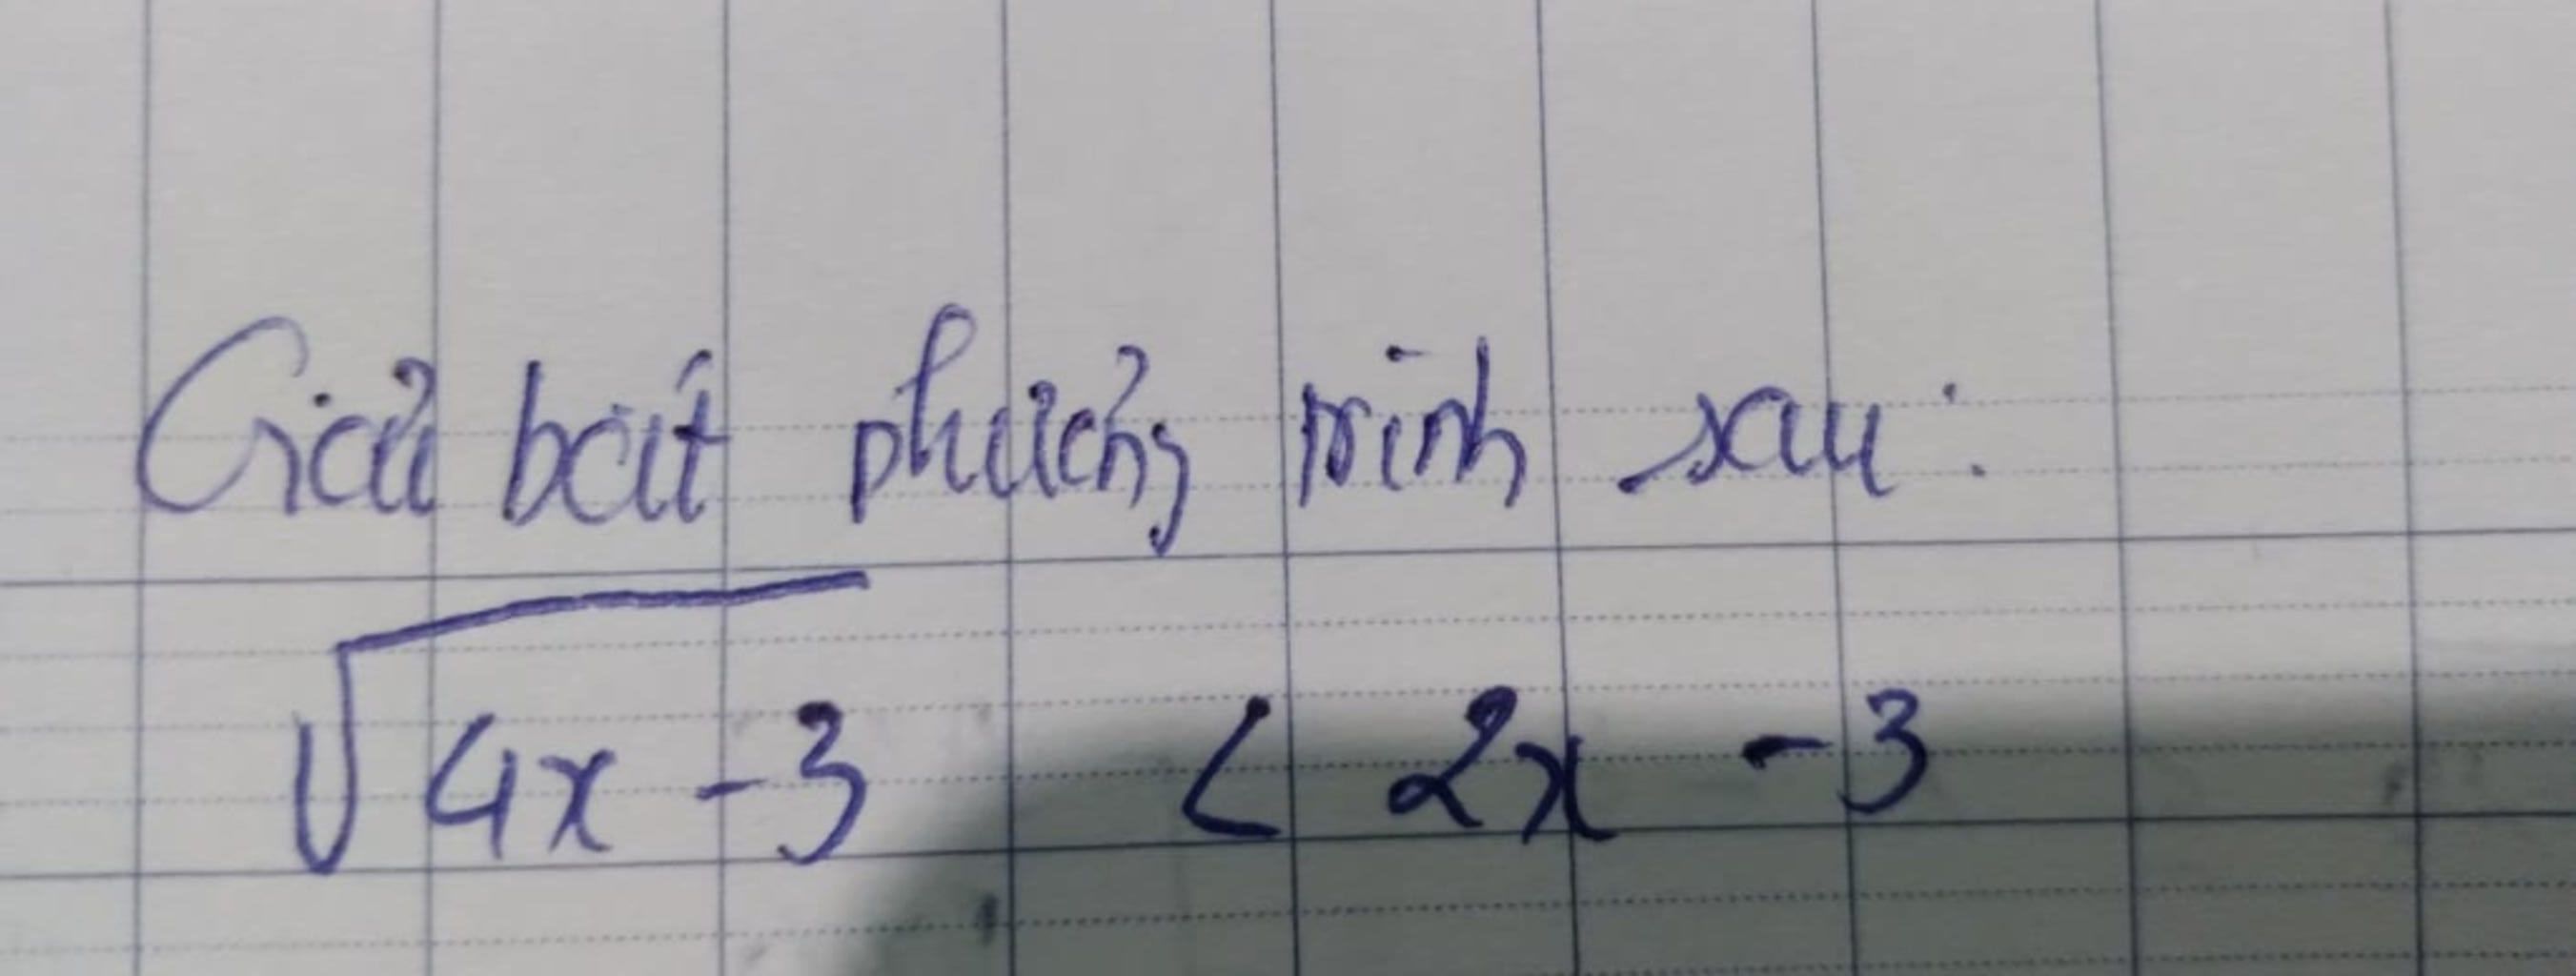 Giải bất phương trình sau:
√4x - 3 < 2x - 3